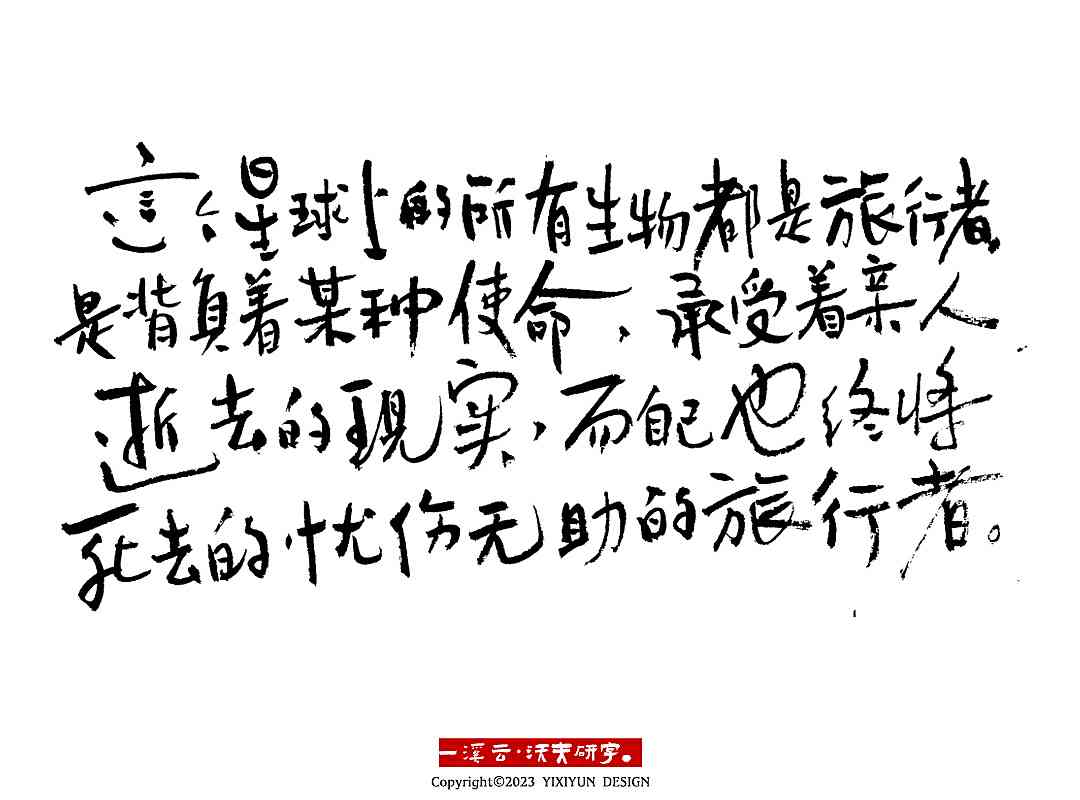 這个星球上的所有生物都是旅行者,
是背負着某种使命,承受着亲人
逝去的現实,而自己也终将
死去的忧伤无助的旅行者。
一溪云·沃夫研字。
Copyright©2023 YIXIYUN DESIGN